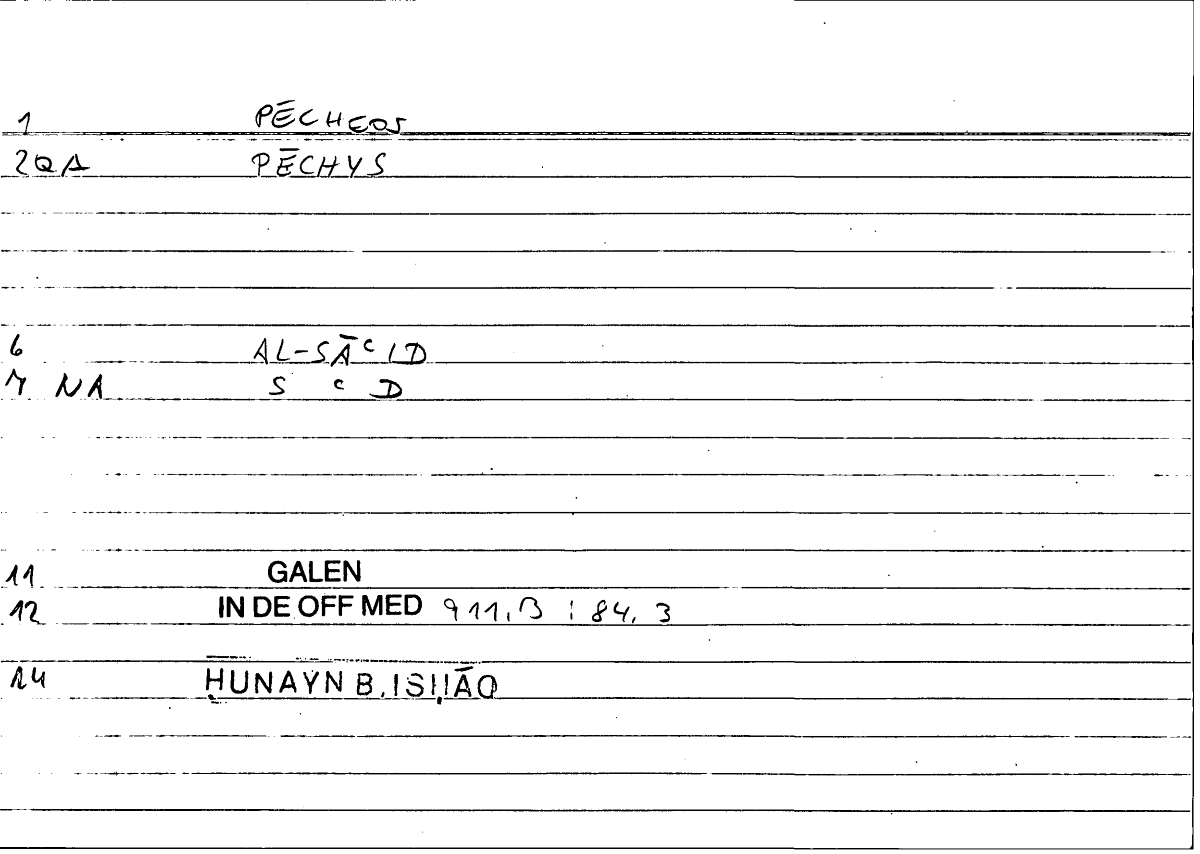 1 PĒCHEOS
2QA PĒCHYS
6 AL-SĀᶜID
7 NA S ᶜ D
11 GALEN
12 IN DE OFF MED 911,13 : 84, 3
14 ḤUNAYN B. ISḤĀQ